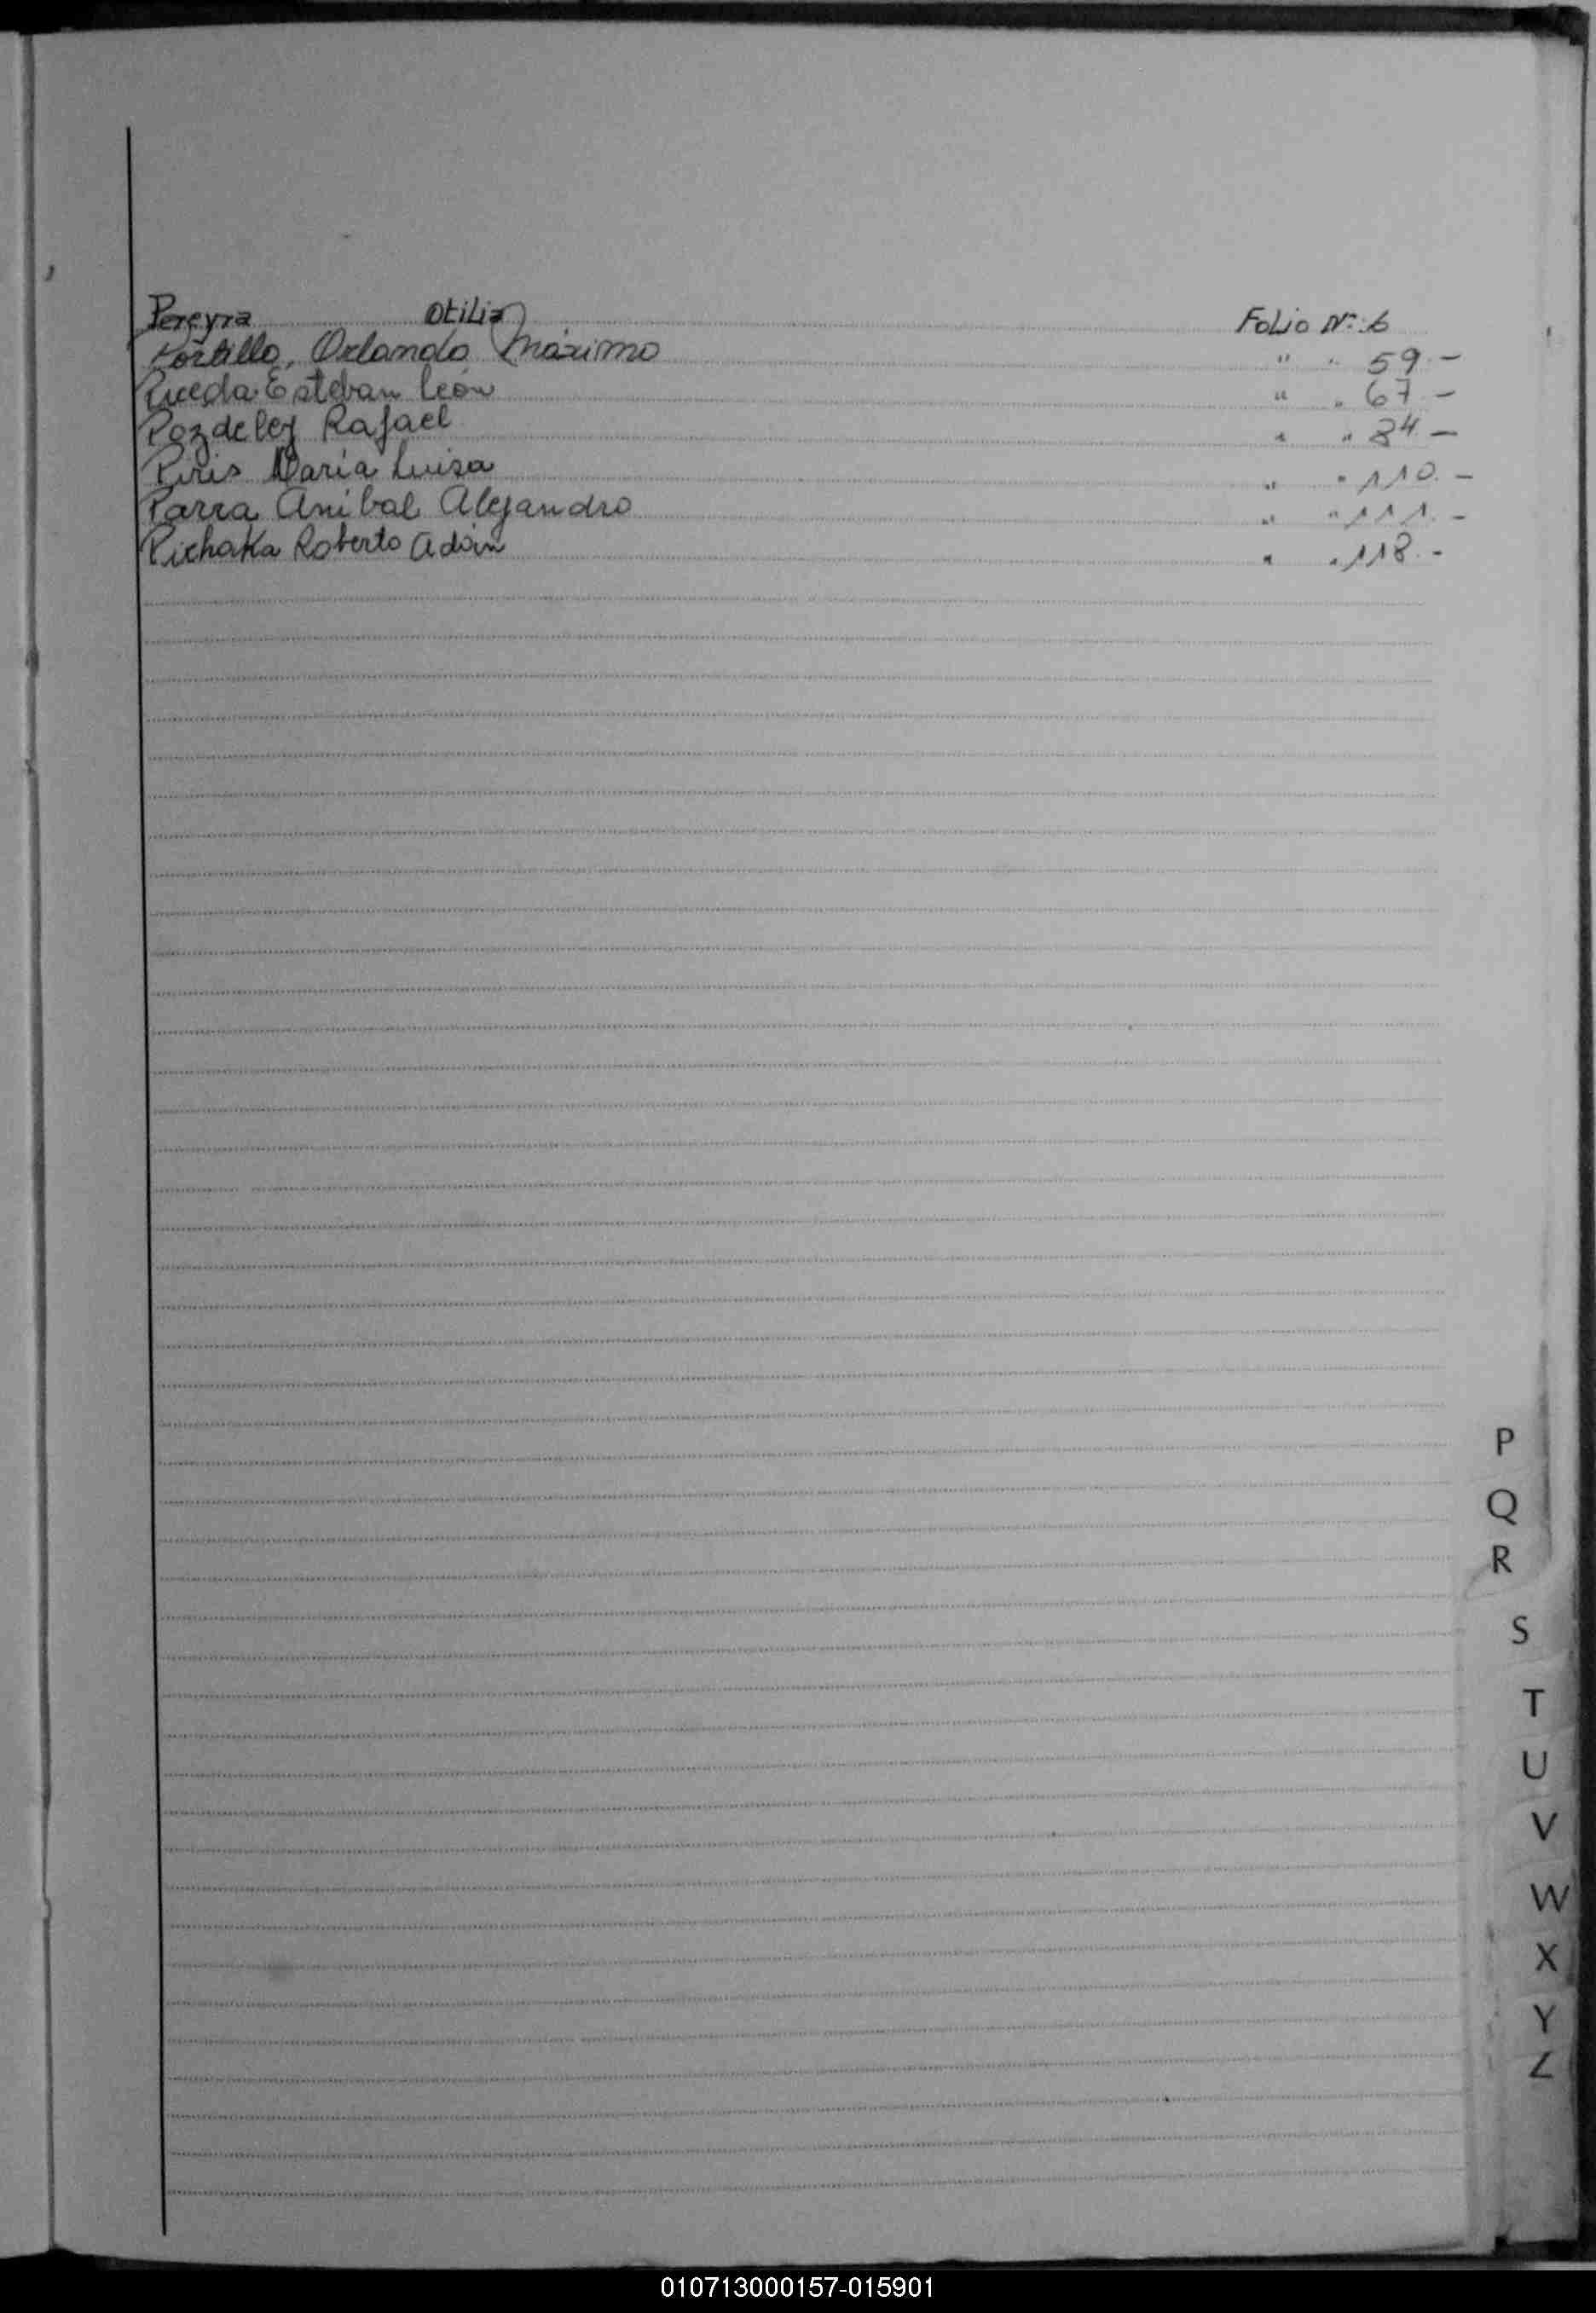 Pereyra Otilia Folio Nº: 6
Portillo, Orlando Máximo " " 59.-
Pueda Esteban León " " 67.-
Pozdeley Rafael " " 84.-
Piris María Luisa " " 110.-
Parra Anibal Alejandro " " 111.-
Pichaka Roberto Adán " " 118.-
P
Q
R
S
T
U
V
W
X
Y
Z
010713000157-015901